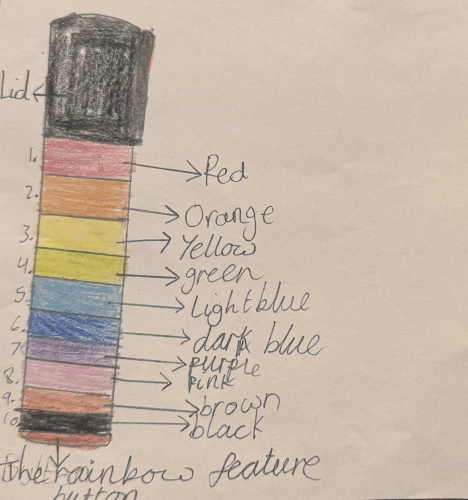 Lid
1. Red
2. Orange
3. Yellow
4. green
5. Light blue
6. dark blue
7 purple
8. Pink
9. brown
10 black
the rainbow feature
button